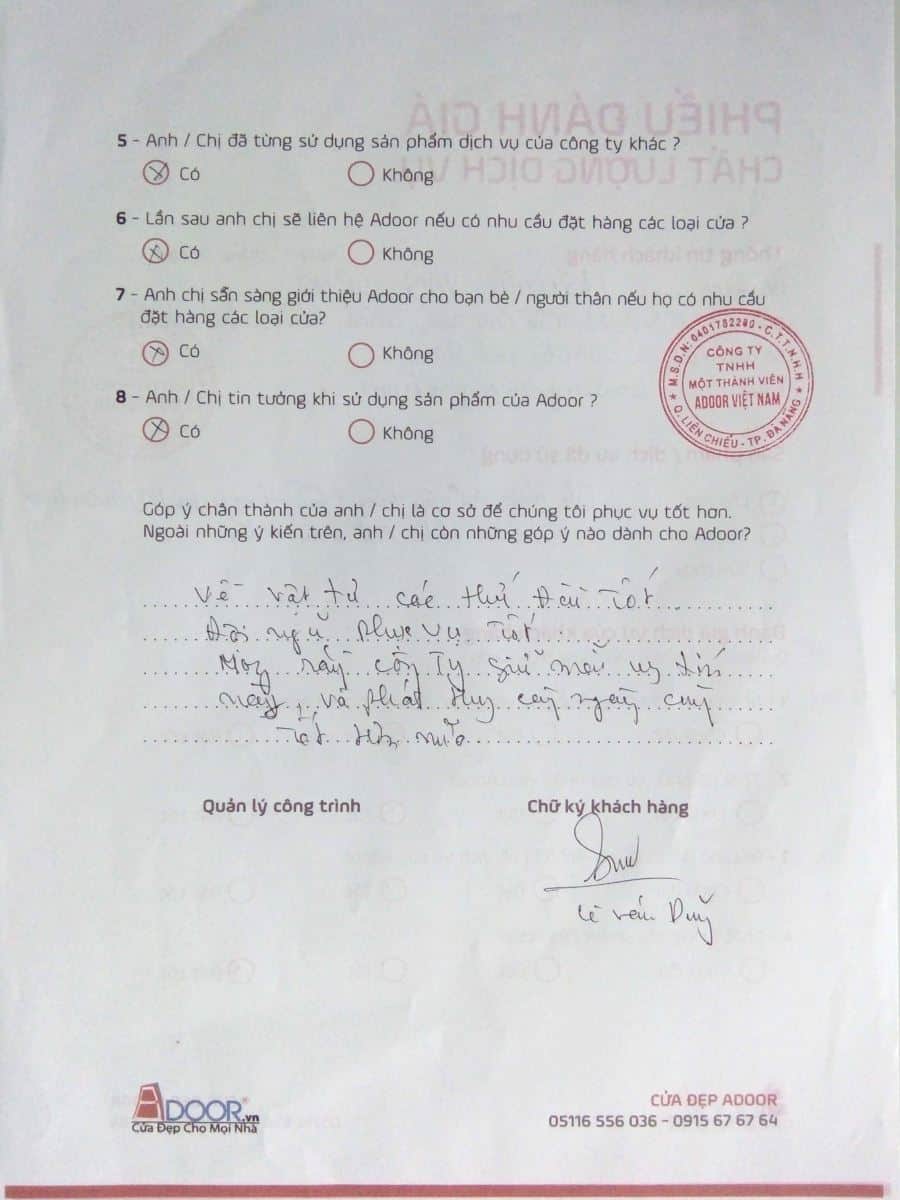 5 - Anh / Chị đã từng sử dụng sản phẩm dịch vụ của công ty khác ?
Có Không
6 - Lần sau anh chị sẽ liên hệ Adoor nếu có nhu cầu đặt hàng các loại cửa ?
Có Không
7 - Anh chị sẵn sàng giới thiệu Adoor cho bạn bè / người thân nếu họ có nhu cầu
đặt hàng các loại cửa?
Có Không
M.S.D.N: 0401782280 - C.T.T.N.H.H
CÔNG TY
TNHH
MỘT THÀNH VIÊN
ADOOR VIỆT NAM
Q. LIÊN CHIỂU - TP. ĐÀ NẴNG
8 - Anh / Chị tin tưởng khi sử dụng sản phẩm của Adoor ?
Có Không
Góp ý chân thành của anh / chị là cơ sở để chúng tôi phục vụ tốt hơn.
Ngoài những ý kiến trên, anh / chị còn những góp ý nào dành cho Adoor?
Về vật tư các thứ đều tốt
Đội ngũ phục vụ tốt
Mong rằng công ty giữ mãi uy tín
này, và phát huy càng ngày càng
tốt hơn nữa
Quản lý công trình Chữ ký khách hàng
Lê Văn Duy
ADOOR.vn
Cửa Đẹp Cho Mọi Nhà
CỬA ĐẸP ADOOR
05116 556 036 - 0915 67 67 64